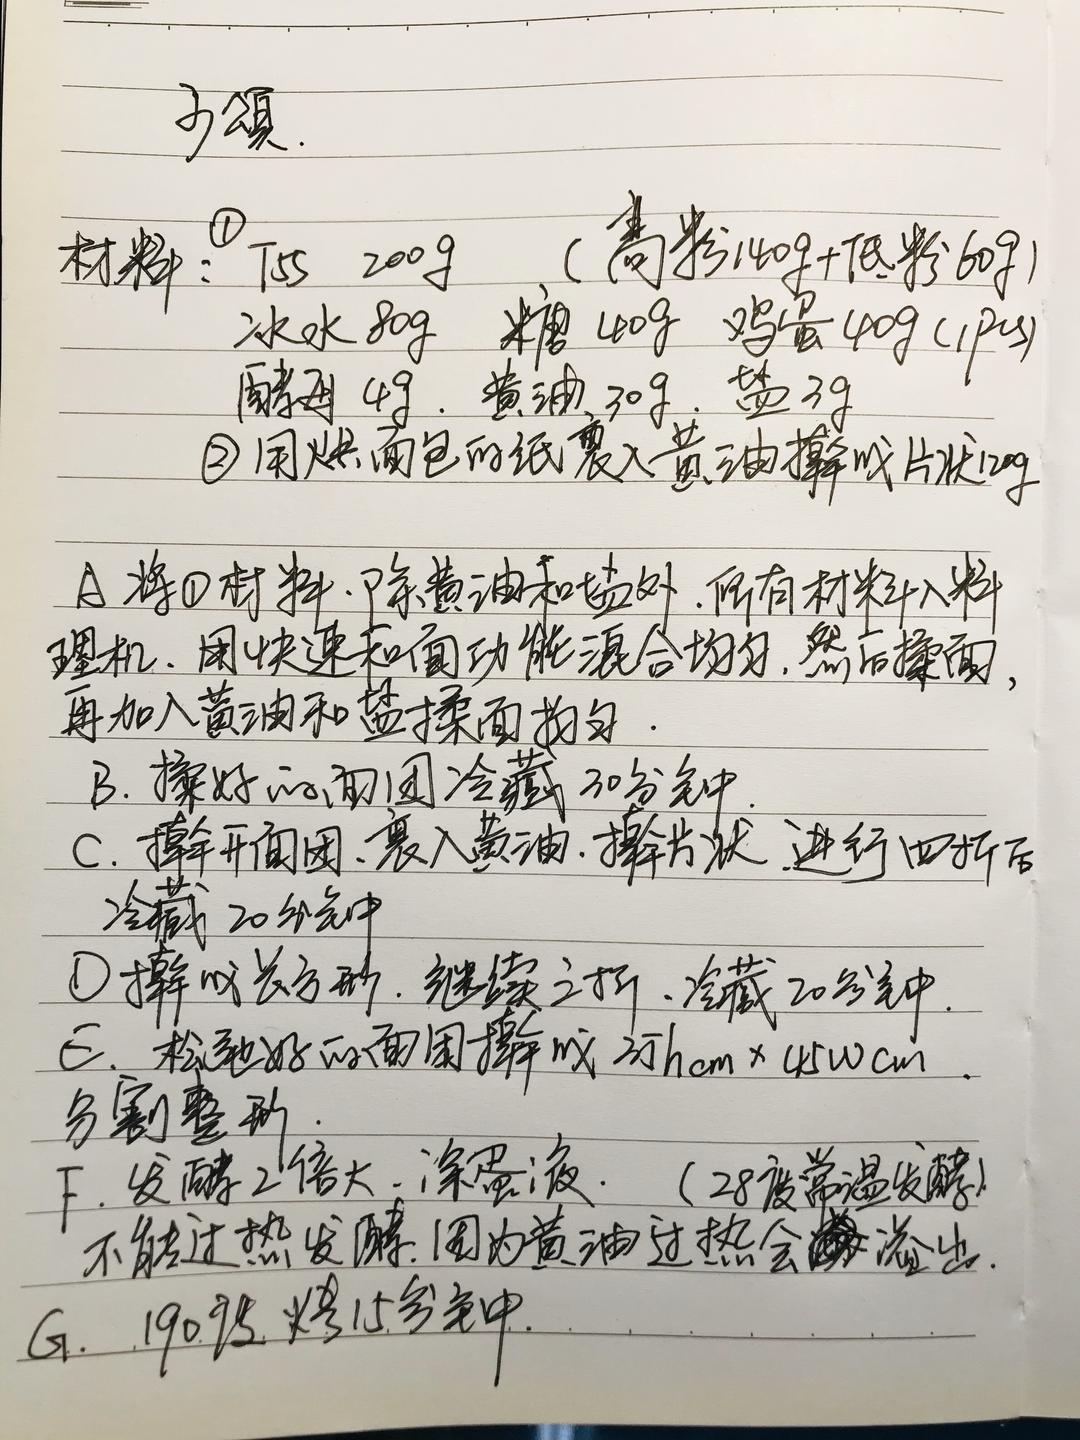 可頌.
材料: ① T55 200g (高粉140g+低粉60g)
冰水80g 糖40g 鸡蛋40g(1pcs)
酵母4g. 黄油30g. 盐3g
②用烘面包的纸裹入黄油擀成片状120g
A 将①材料.除黄油和盐外.所有材料入料
理机.用快速和面功能混合均匀.然后揉面,
再加入黄油和盐揉面均匀.
B. 揉好的面团冷藏30分钟.
C. 擀开面团、裹入黄油.擀片状 进行四折后
冷藏20分钟
D擀成长方形.继续三折.冷藏20分钟.
E. 松弛好的面团擀成 hcm×45wcm.
分割整形.
F. 发酵2倍大.涂蛋液. (28度常温发酵)
不能过热发酵.因为黄油过热会溢出.
G. 190 烤15分钟.